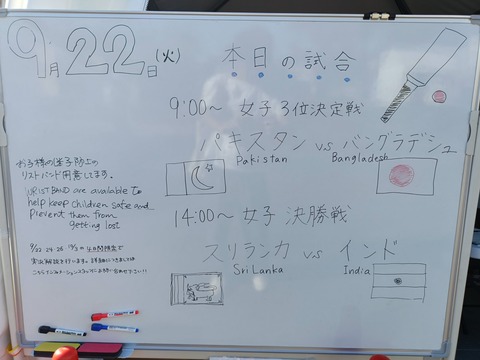 9月22日(火)
本日の試合
9:00〜 女子3位決定戦
パキスタン vs バングラデシュ
Pakistan Bangladesh
14:00〜 女子 決勝戦
スリランカ vs インド
Sri Lanka India
お子様の迷子防止の
リストバンド用意してます。
WRIST BAND are available to
help keep children safe and
Prevent them from
getting lost
9/22 24 26
の4日間限定で
実況解説を行います。詳細につきましては